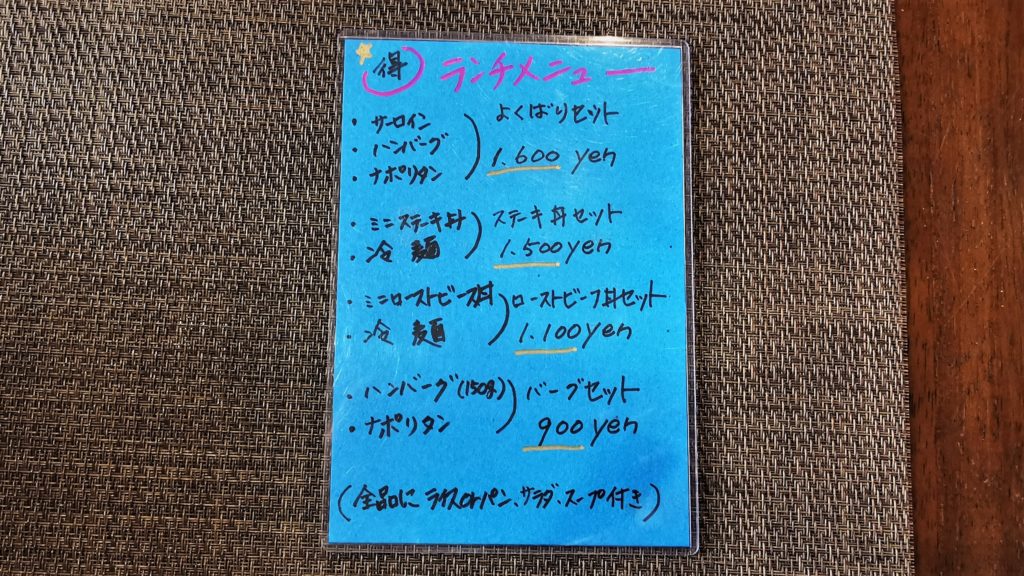 得 ランチメニュー
・サーロイン
・ハンバーグ
・ナポリタン
よくばりセット
1.600 yen
・ミニステーキ丼
・冷麺
ステーキ丼セット
1.500yen
・ミニローストビーフ丼
・冷麺
ローストビーフ丼セット
1.100yen
・ハンバーグ(150g)
・ナポリタン
バーグセット
900 yen
(全品にライスorパン、サラダ、スープ付き)